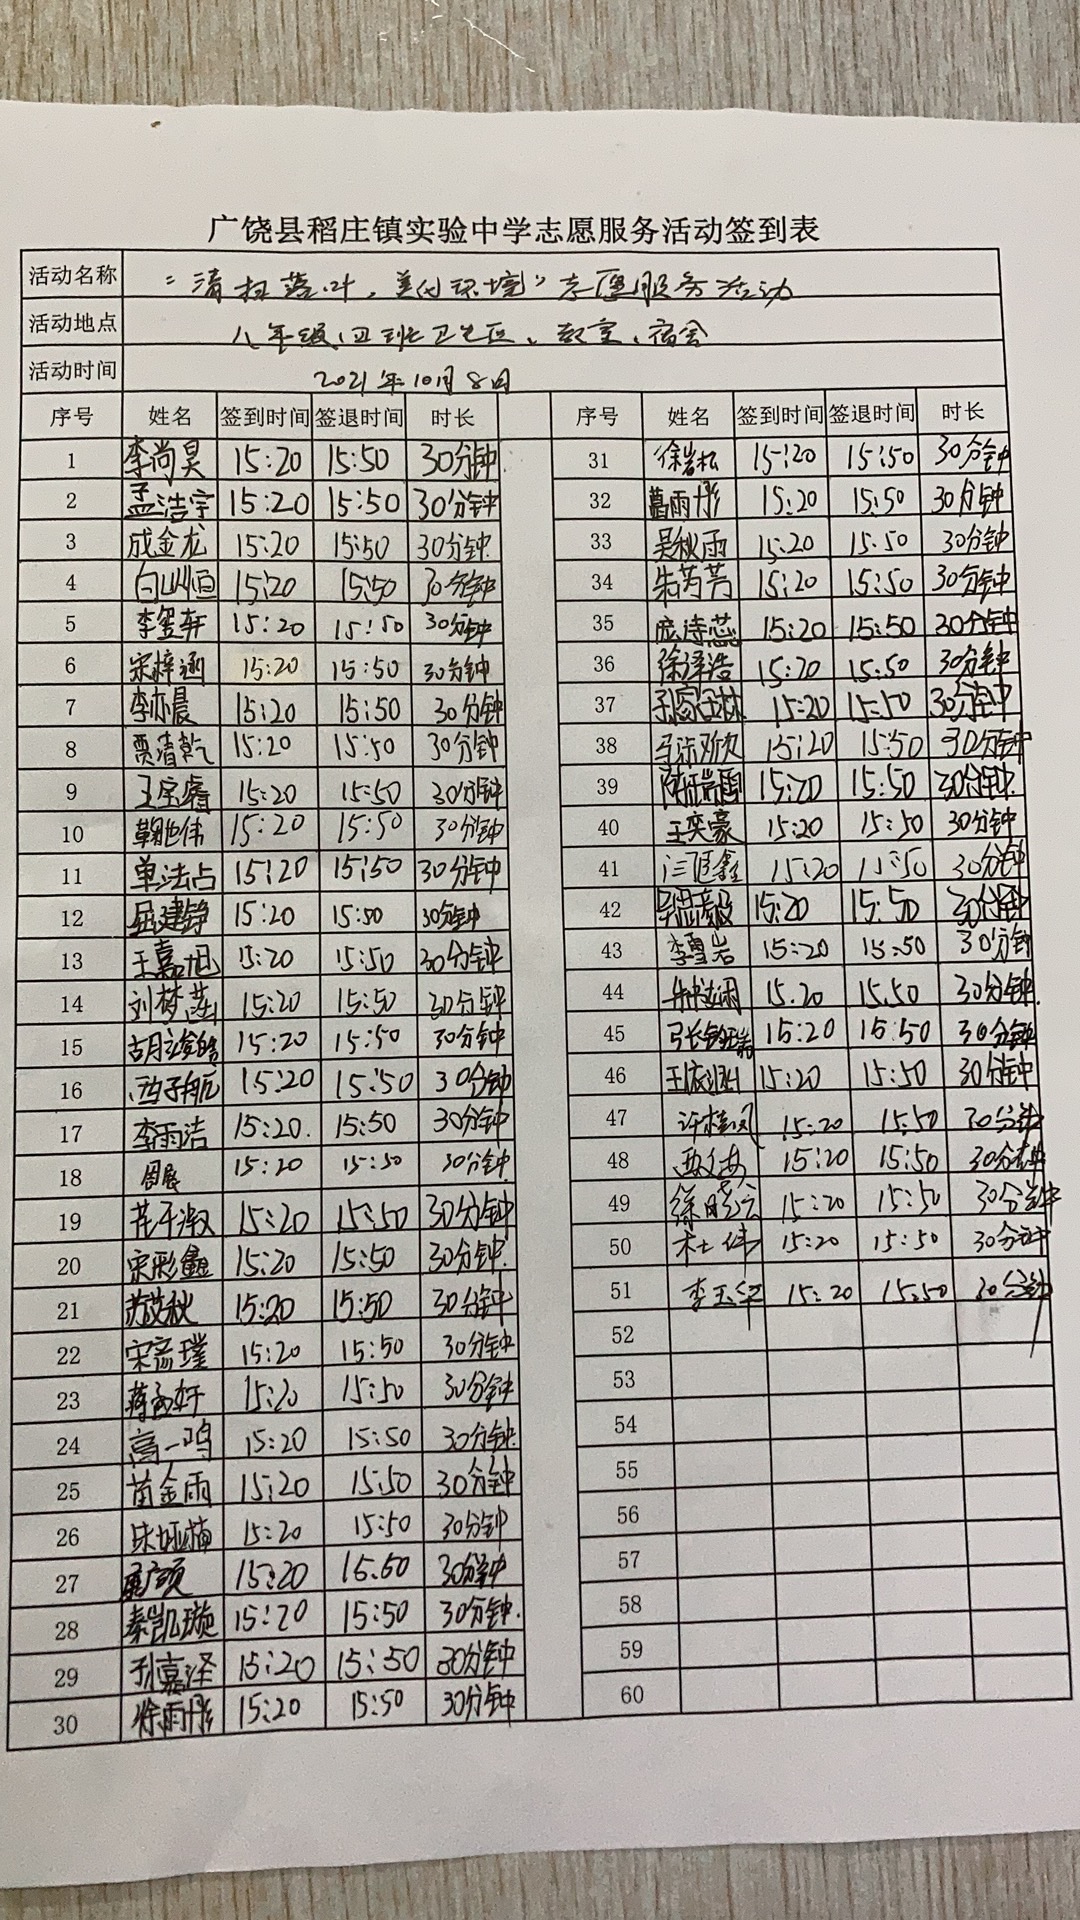 广饶县稻庄镇实验中学志愿服务活动签到表
活动名称 “清扫落叶，美化环境”志愿服务活动
活动地点 八年级四班卫生区、教室、宿舍
活动时间 2021年10月8日
序号 姓名 签到时间 签退时间 时长 序号 姓名 签到时间 签退时间 时长
1 李尚昊 15:20 15:50 30分钟 31 徐岩松 15:20 15:50 30分钟
2 孟浩宇 15:20 15:50 30分钟 32 葛雨彤 15:20 15:50 30分钟
3 成金龙 15:20 15:50 30分钟 33 吴秋雨 15:20 15:50 30分钟
4 15:20 15:50 30分钟 34 朱芮芳 15:20 15:50 30分钟
5 李昱轩 15:20 15:50 30分钟 35 庞诗蕊 15:20 15:50 30分钟
6 宋梓涵 15:20 15:50 30分钟 36 徐泽浩 15:20 15:50 30分钟
7 李亦晨 15:20 15:50 30分钟 37 15:20 15:50 30分钟
8 贾清乾 15:20 15:50 30分钟 38 15:20 15:50 30分钟
9 王宝睿 15:20 15:50 30分钟 39 陈瑞雪 15:20 15:50 30分钟
10 鞠驰伟 15:20 15:50 30分钟 40 王奕豪 15:20 15:50 30分钟
11 单法占 15:20 15:50 30分钟 41 15:20 15:50 30分钟
12 屈建铮 15:20 15:50 30分钟 42 15:20 15:50 30分钟
13 王嘉旭 15:20 15:50 30分钟 43 李雪岩 15:20 15:50 30分钟
14 刘梦菡 15:20 15:50 30分钟 44 15:20 15:50 30分钟
15 胡凌皓 15:20 15:50 30分钟 45 15:20 15:50 30分钟
16 15:20 15:50 30分钟 46 15:20 15:50 30分钟
17 李雨洁 15:20 15:50 30分钟 47 许桂凤 15:20 15:50 30分钟
18 周展 15:20 15:50 30分钟 48 15:20 15:50 30分钟
19 15:20 15:50 30分钟 49 徐晓云 15:20 15:50 30分钟
20 宋彤鑫 15:20 15:50 30分钟 50 杜伟 15:20 15:50 30分钟
21 苏艾秋 15:20 15:50 30分钟 51 李玉华 15:20 15:50 30分钟
22 宋嘉璞 15:20 15:50 30分钟 52
23 蒋孟轩 15:20 15:50 30分钟 53
24 高一鸣 15:20 15:50 30分钟 54
25 苗金雨 15:20 15:50 30分钟 55
26 15:20 15:50 30分钟 56
27 15:20 15:50 30分钟 57
28 秦凯璇 15:20 15:50 30分钟 58
29 孙嘉泽 15:20 15:50 30分钟 59
30 徐雨彤 15:20 15:50 30分钟 60